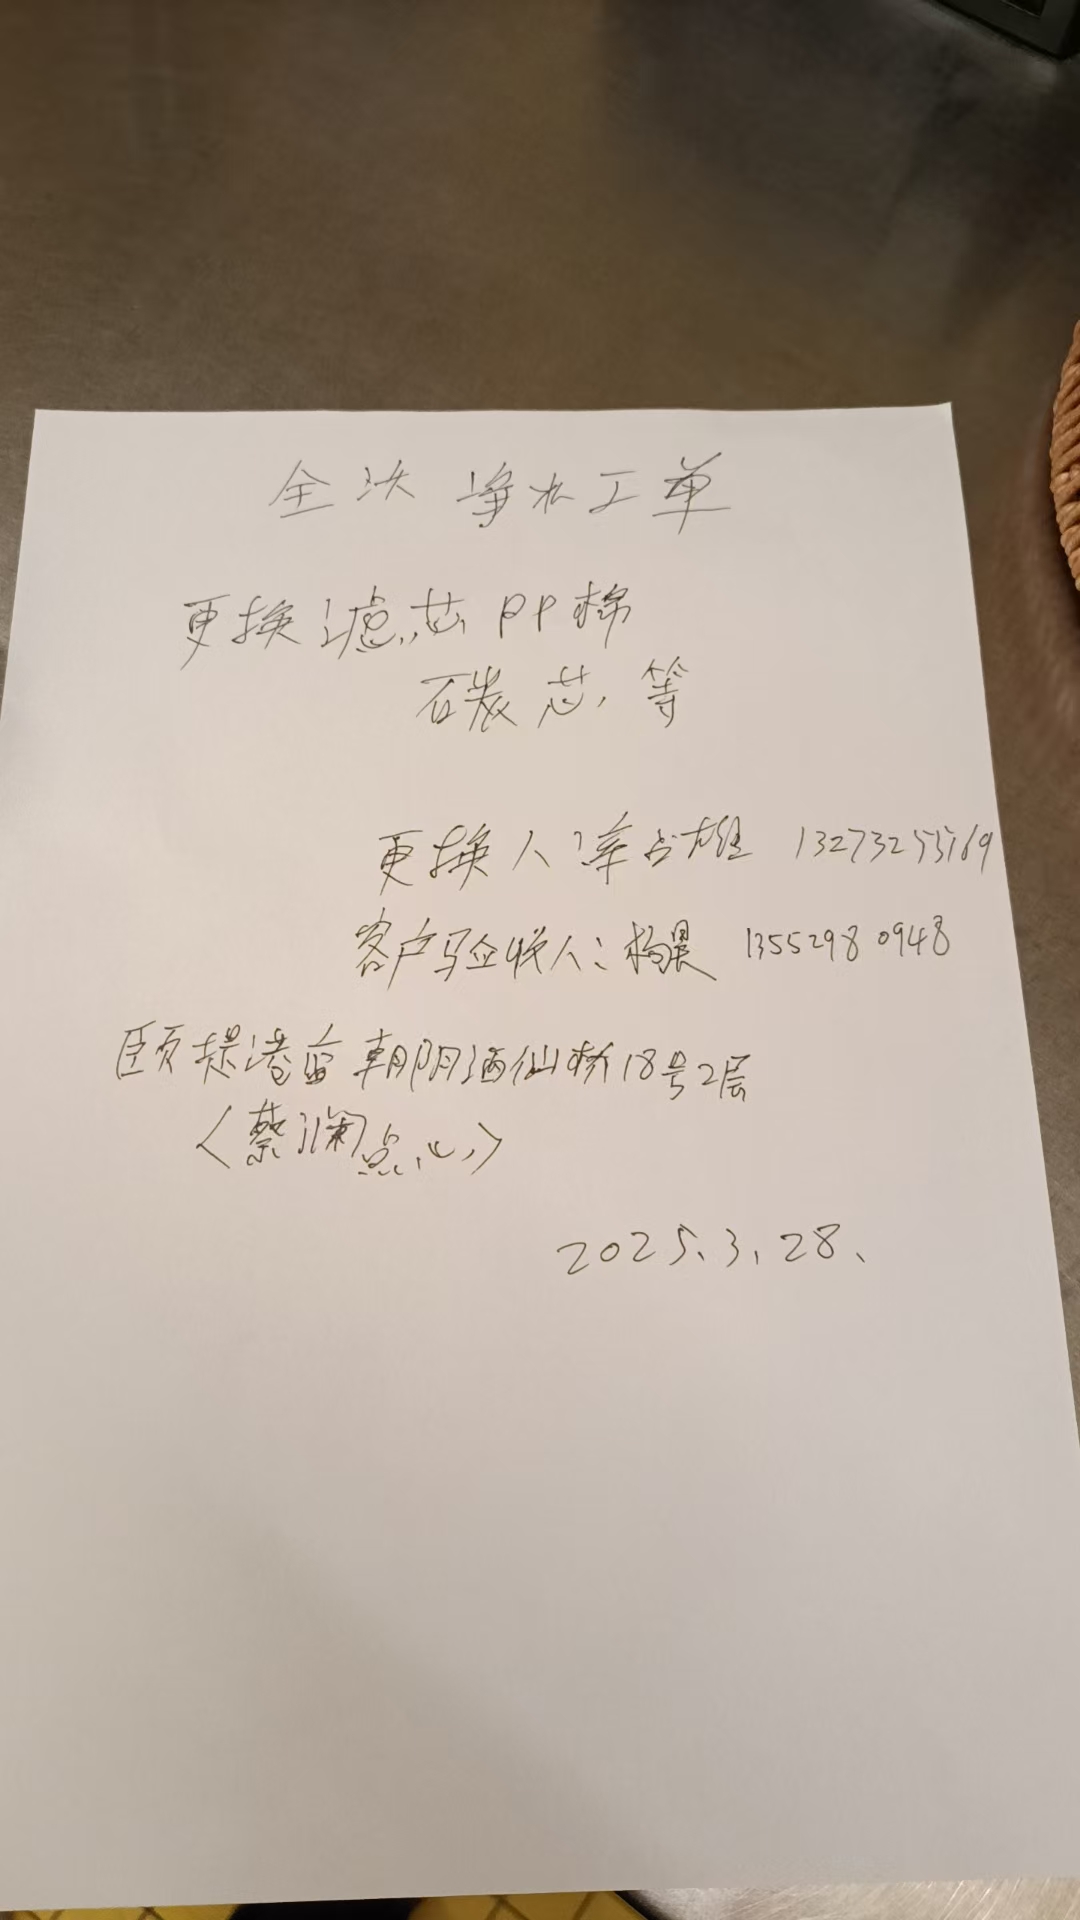 全沃 净水工单
更换滤芯 PP棉
碳芯 等
更换人
客户验收人: 杨晨 13552980948
颐堤港店 朝阳酒仙桥18号2层
〈蔡澜点心〉
2025.3.28、